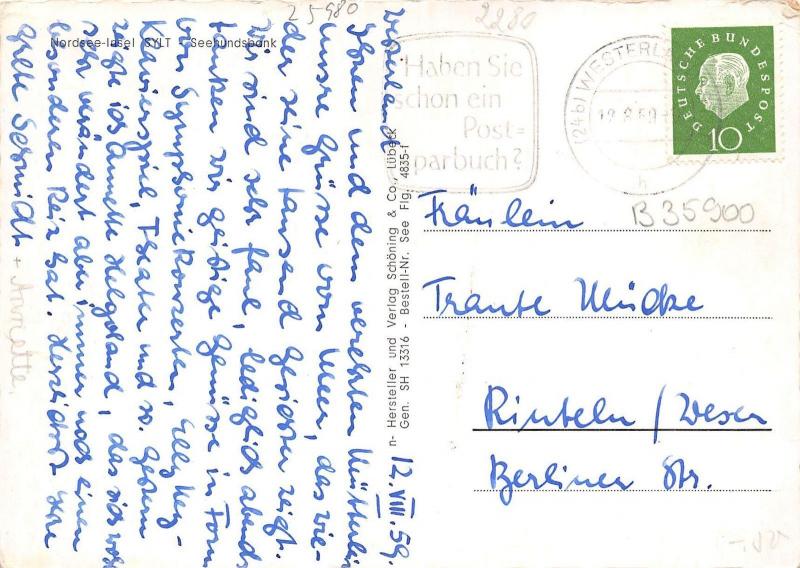 25980
2280
Nordsee-Insel SYLT - Seehundsbank
Haben Sie
schon ein
Post=
sparbuch?
(24b) WESTERLAND
12.8.59
h
DEUTSCHE BUNDESPOST
10
B35900
n- Hersteller und Verlag Schöning & Co., Lübeck
Gen. SH 13316 - Bestell-Nr. See Flg. 4835-f
Westerland 12.VIII.59.
Ihnen und dem verehrten Mütterlein
unsre Grüsse vom Meer, das wie-
der seine tausend Gesichter zeigt.
Wir sind sehr faul, lediglich abends
tanken wir geistige Genüsse in Form
von Symphoniekonzerten, Elly Ney-
Klavierspiel, Theater und so. Gestern
zeigte ich Annette Helgoland, das sich wohl
sehr verändert aber immer noch einen
besonderen Reiz hat. Herzlichst Ihre
Grete Schmidt + Annette.
Fräulein
Traute Mücke
Rinteln/Weser
Berliner Str.